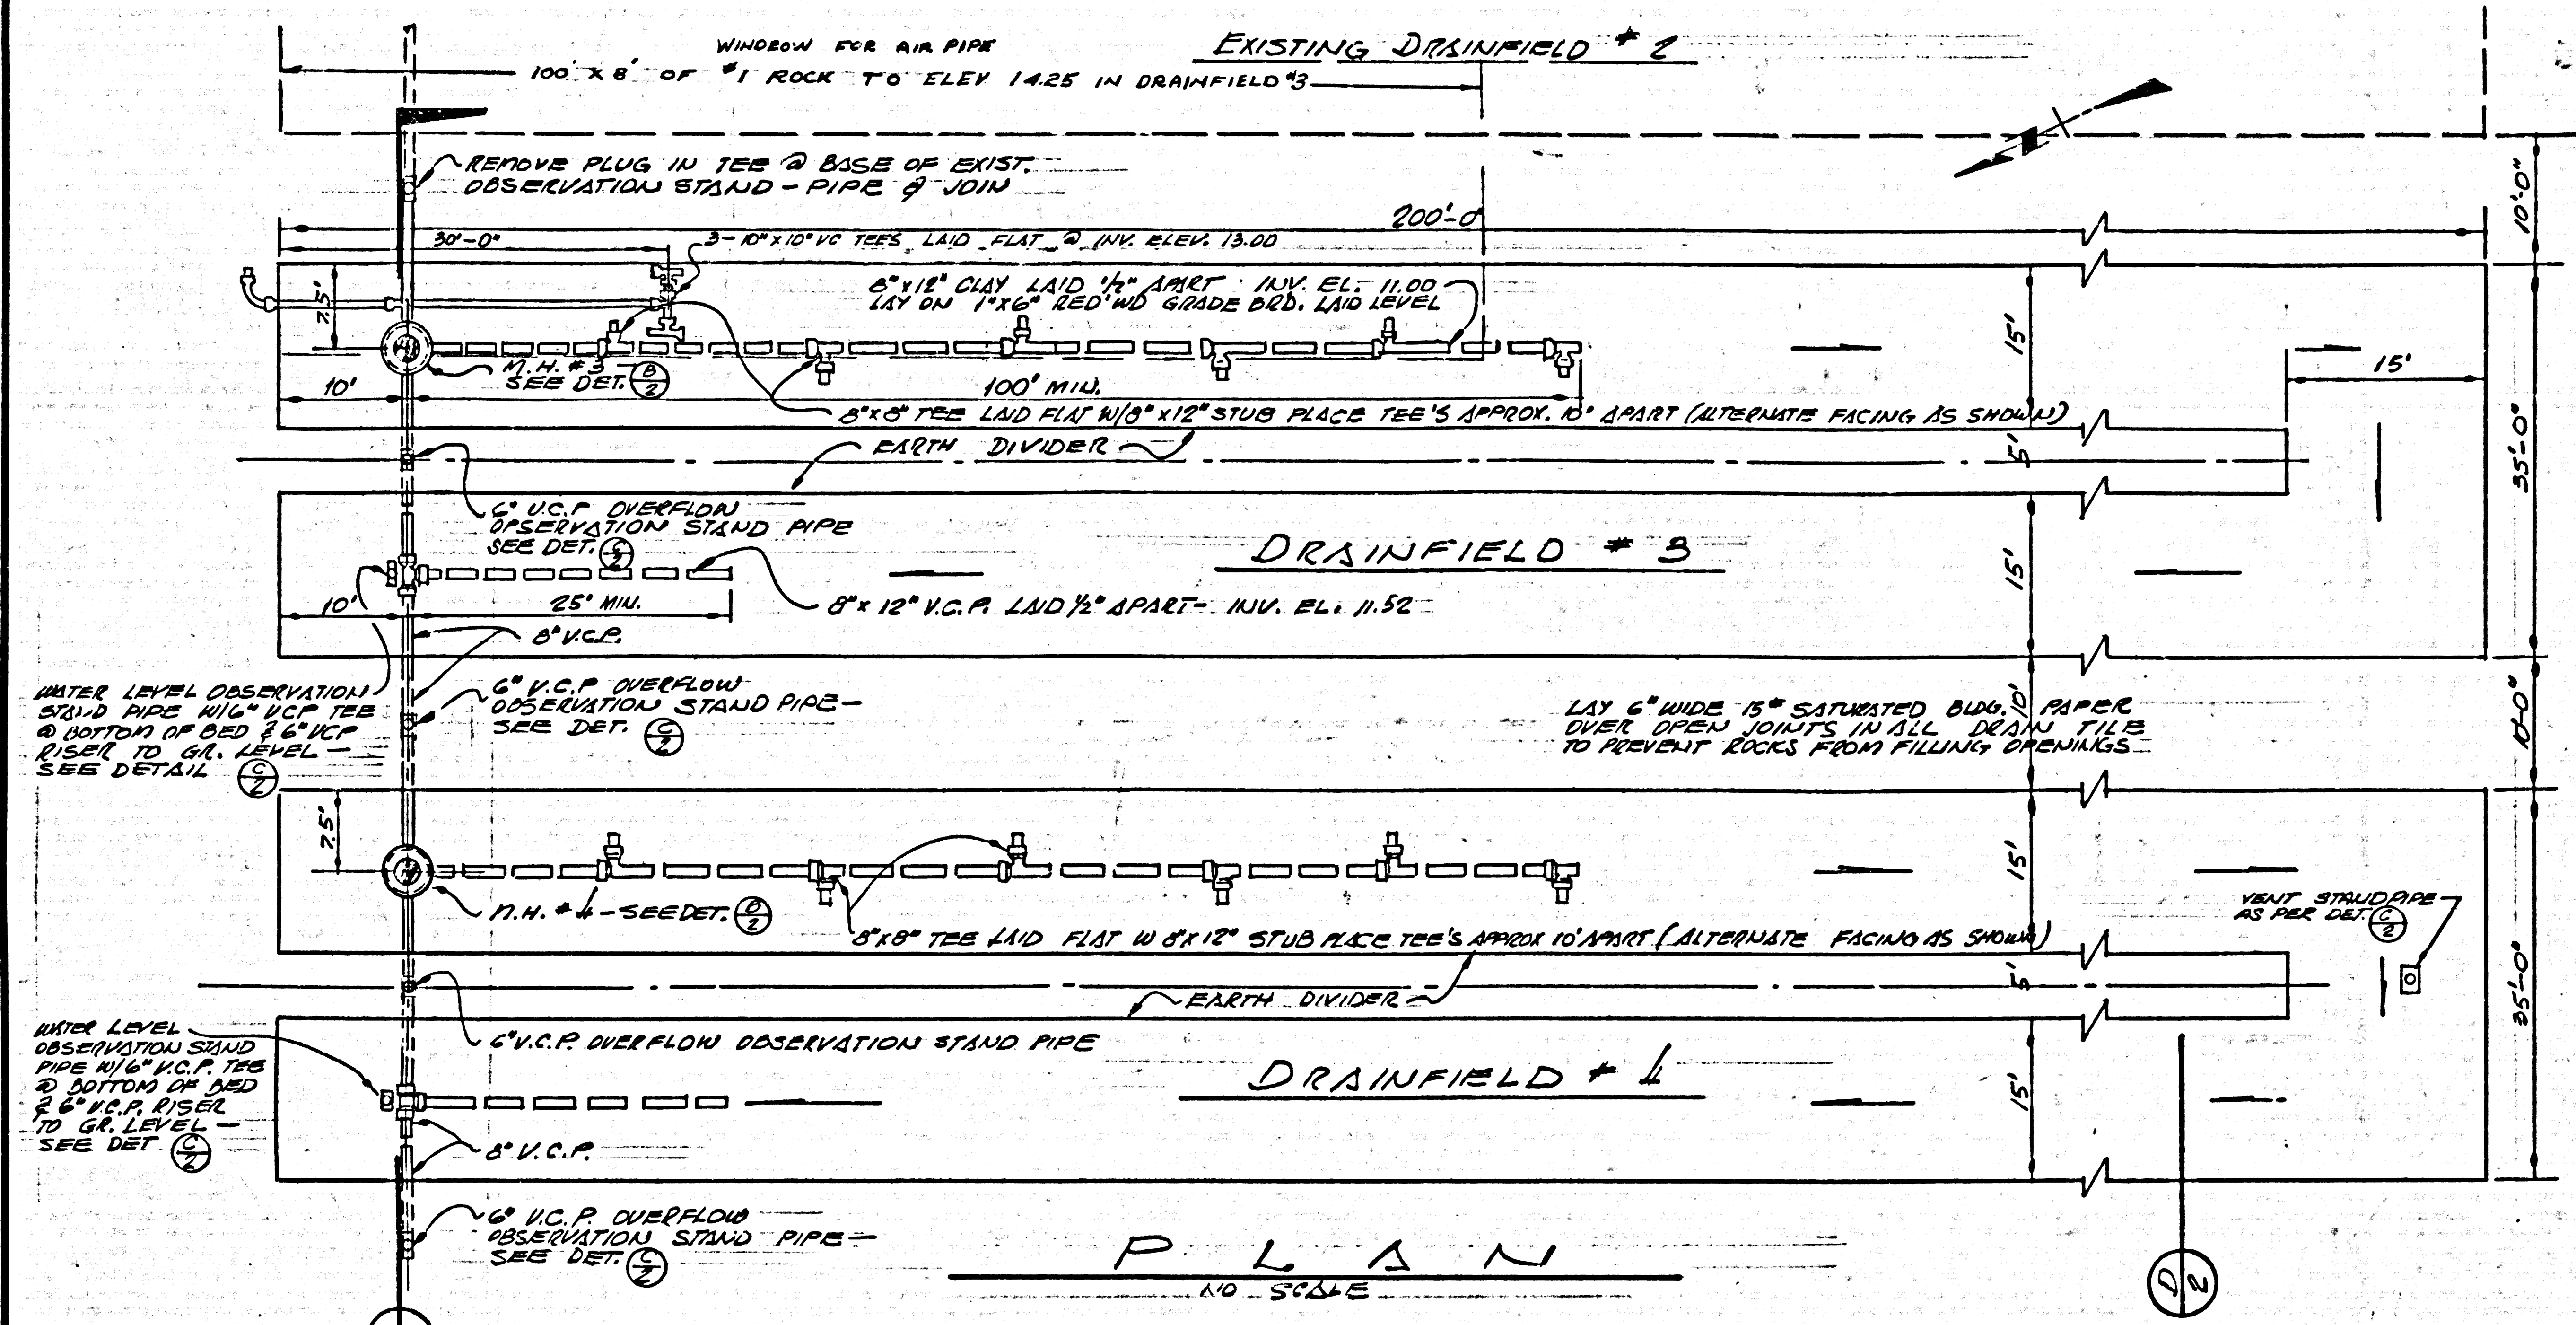 WINDROW FOR AIR PIPE
100' X 8' OF #1 ROCK TO ELEV 14.25 IN DRAINFIELD #3
EXISTING DRAINFIELD # 2
REMOVE PLUG IN TEE @ BASE OF EXIST.
OBSERVATION STAND - PIPE & JOIN
10'-0"
200'-0"
30'-0"
3-10"x10" VC TEES LAID FLAT @ INV. ELEV. 13.00
7.5'
8"x12" CLAY LAID 1/2" APART INV. EL. 11.00
LAY ON 1"x6" RED'WD GRADE BRD. LAID LEVEL
15'
15'
M.H. #3
SEE DET. B/2
10'
100' MIN.
8"x8" TEE LAID FLAT W/8"x12" STUB PLACE TEE'S APPROX. 10' APART (ALTERNATE FACING AS SHOWN)
EARTH DIVIDER
5'
35'-0"
6" V.C.P OVERFLOW
OPSERVATION STAND PIPE
SEE DET. C/2
DRAINFIELD # 3
15'
10'
25' MIN.
8"x 12" V.C.P. LAID 1/2" APART- INV. EL. 11.52
8" V.C.P.
WATER LEVEL OBSERVATION
STAND PIPE W/6" VCP TEE
@ BOTTOM OF BED & 6" VCP
RISER TO GR. LEVEL -
SEE DETAIL C/2
6" V.C.P OVERFLOW
OBSERVATION STAND PIPE -
SEE DET. C/2
LAY 6" WIDE 15# SATURATED BLDG. PAPER
OVER OPEN JOINTS IN ALL DRAIN TILE
TO PREVENT ROCKS FROM FILLING OPENINGS
10'
10'-0"
7.5'
15'
M.H. #4 - SEE DET. B/2
VENT STANDPIPE
AS PER DET. C/2
8"x8" TEE LAID FLAT W 8"x12" STUB PLACE TEE'S APPROX 10' APART (ALTERNATE FACING AS SHOWN)
5'
EARTH DIVIDER
35'-0"
WATER LEVEL
OBSERVATION STAND
PIPE W/6" V.C.P. TEE
@ BOTTOM OF BED
& 6" V.C.P. RISER
TO GR. LEVEL -
SEE DET C/2
6" V.C.P. OVERFLOW OBSERVATION STAND PIPE
DRAINFIELD # 4
15'
8" V.C.P.
6" V.C.P. OVERFLOW
OBSERVATION STAND PIPE -
SEE DET. C/2
PLAN
NO SCALE
D/2